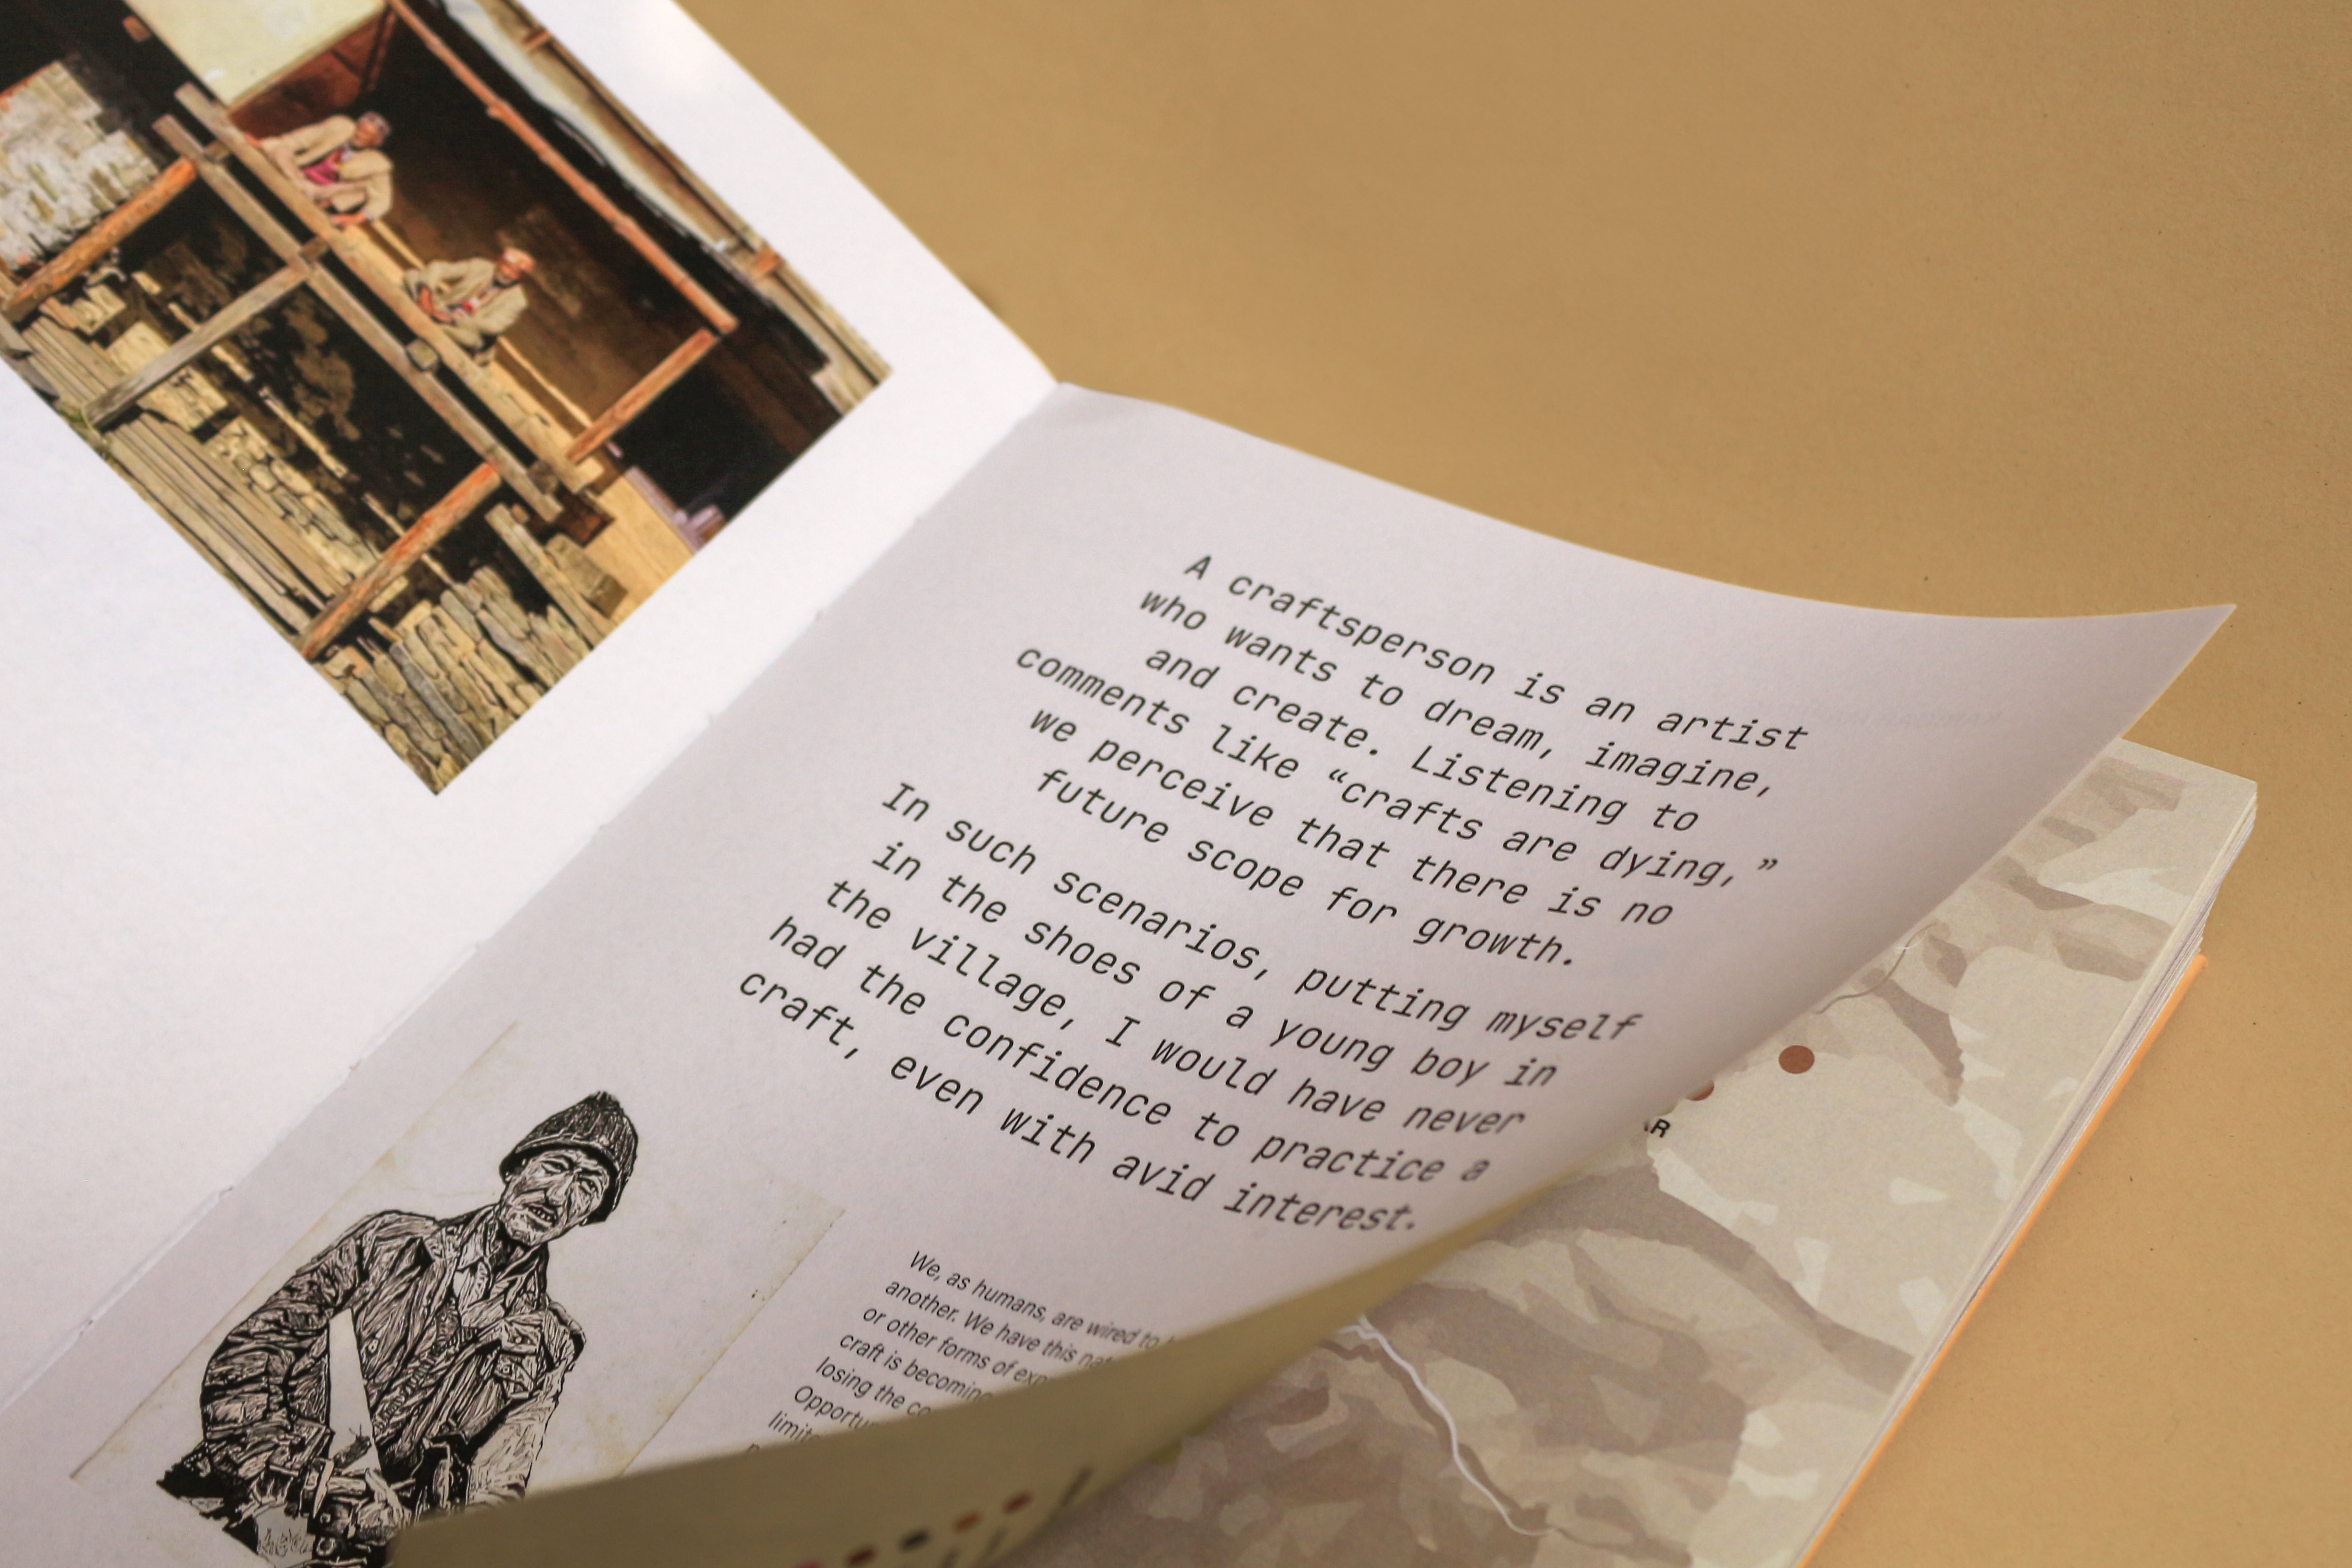 A craftsperson is an artist
who wants to dream, imagine,
and create. Listening to
comments like “crafts are dying,”
we perceive that there is no
future scope for growth.
In such scenarios, putting myself
in the shoes of a young boy in
the village, I would have never
had the confidence to practice a
craft, even with avid interest.
We, as humans, are wired to
another. We have this
or other forms of
craft is becoming
losing the